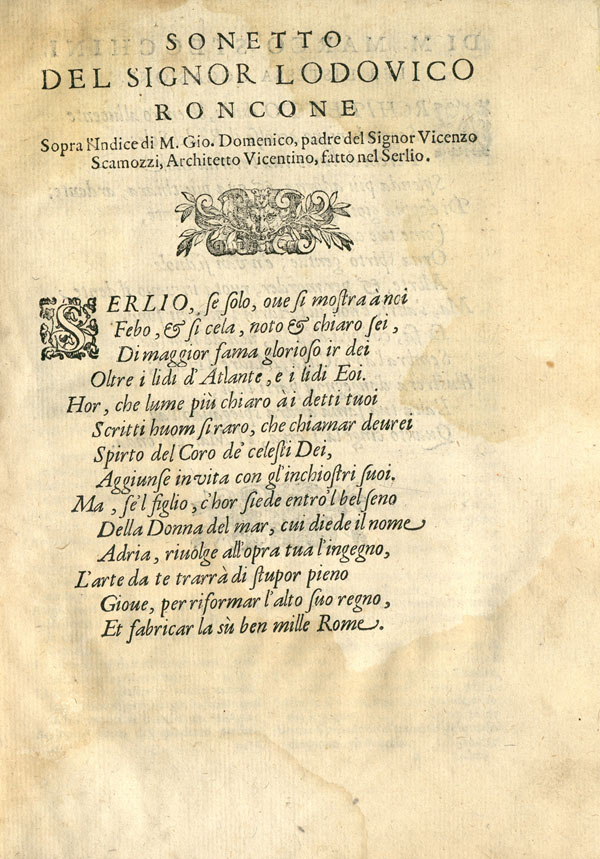 SONETTO
DEL SIGNOR LODOVICO
RONCONE
Sopra l'Indice di M. Gio. Domenico, padre del Signor Vicenzo
Scamozzi, Architetto Vicentino, fatto nel Serlio.
SERLIO, se solo, oue si mostra à noi
Febo, & si cela, noto & chiaro sei,
Di maggior fama glorioso ir dei
Oltre i lidi d'Atlante, e i lidi Eoi.
Hor, che lume più chiaro à i detti tuoi
Scritti huom si raro, che chiamar deurei
Spirto del Coro de' celesti Dei,
Aggiunse in vita con gl'inchiostri suoi.
Ma, se'l figlio, c'hor siede entro'l bel seno
Della Donna del mar, cui diede il nome
Adria, riuolge all'opra tua l'ingegno,
L'arte da te trarrà di stupor pieno
Gioue, per riformar l'alto suo regno,
Et fabricar la sù ben mille Rome.